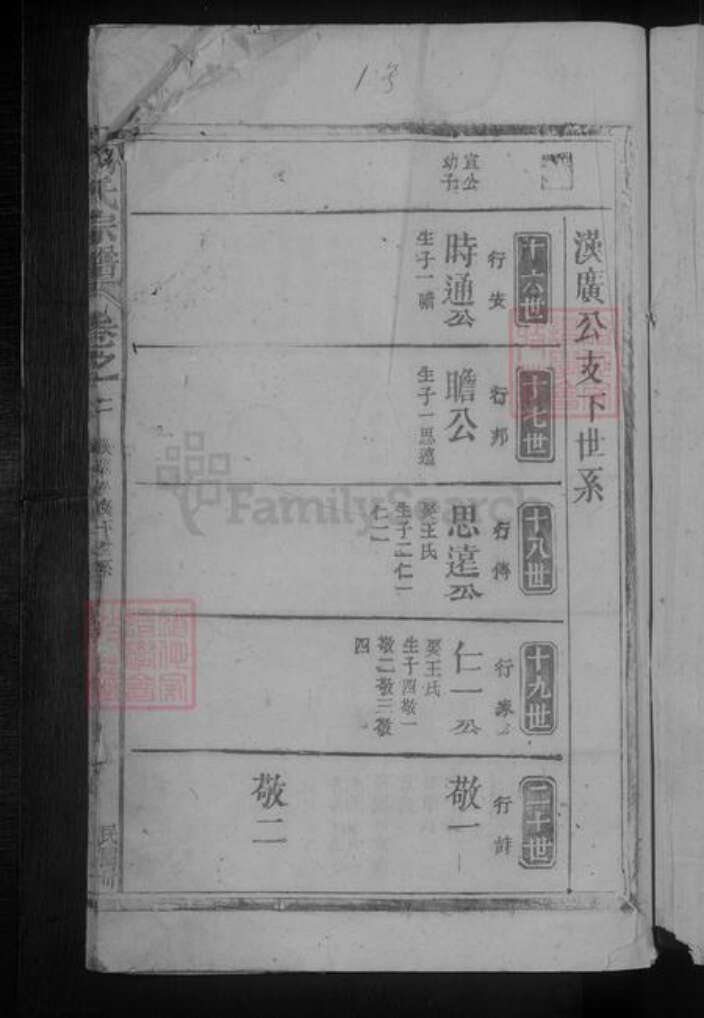 1号
漢廣公支下世系
宣公
幼子
十六世
行安
時通公
生子一瞻
十七世
行邦
瞻公
生子一思遠
十八世
行傳
思遠公
娶王氏
生子二仁一
仁二
十九世
行家
仁一公
娶王氏
生子四敬一
敬二敬三敬
四
二十世
行詩
敬一
敬二
氏宗譜
卷之一
FamilySearch